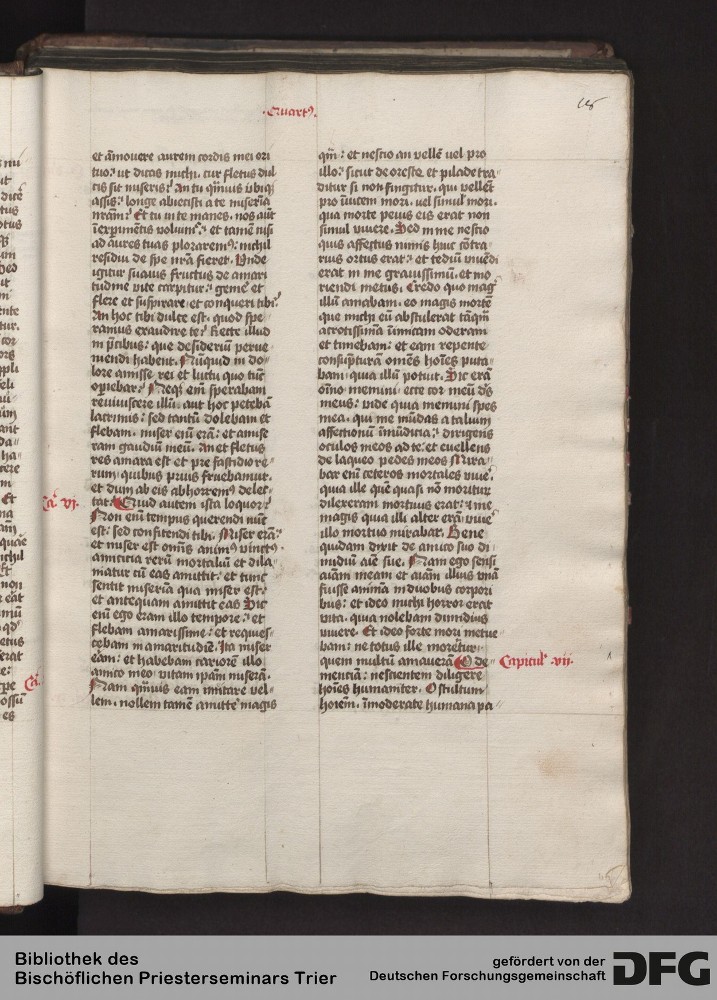 ·Quart⁹·
et āmovere aurem cordis mei ori
tuo: ut dicas michi. cur fletus dul
cis sit miseris? an tu q̄mvis ubiq̨
assis: longe abiecisti a te miseriā
nr̄am? Et tu in te manes. nos aūt
ī exꝑimentis volvim⁹: et tamē nisi
ad aures tuas ploraremꝰ: nichil
residui de spe nr̄a fieret. Unde
igitur suavis fructus de amari
tudine vite carpitur: gemē et
flere et suspirare et conqueri tibi?
An hoc tibi dulce est. quod spe
ramus exaudire te? Recte illud
in p̄cibus: que desideriū perve
niendi habent. Nūquid in do
lore amisse rei et luctu quo tūc
opiebar? Neq̨ em̄ sperabam
reviviscere illū. aut hoc petebā
lacrimis: sed tantū dolebam et
flebam. miser em̄ erā: et amise
ram gaudiū meū. An et fletus
res amara est et pre fastidio re⸗
rum quibus prius fruebamur.
et dum ab eis abhorrem⁹ delec⸗
tat? Quid autem ista loquor?
Ca. vi.
Non em̄ tempus querendi nūc
est: sed confitendi tibi. Miser erā:
et miser est omis anim⁹ vinct⁹
amicitia rerū mortaliū et dila
niatur cū eas amittit: et tunc
sentit miseriā qua miser est:
et antequam amittit eas Sic
em̄ ego eram illo tempore: et
flebam amarissime: et requies⸗
cebam in amaritudīe. Ita miser
eram: et habebam cariorē illo
amico meo vitam ip̄am miserā.
Nam q̄mvis eam mutare vel⸗
lem. nollem tamē amitte magis
q̄m: et nescio an vellē vel pro
illo: sicut de oreste. et pilade tra⸗
ditur si non fingitur. qui vellēt
pro īvicem mori. vel simul mori.
qua morte peius eis erat non
simul vivere. Sed in me nescio
quis affectus nimis huic cōtra
rius ortus erat: et tediū vivēdi
erat in me gravissimū. et mo
riendi metus. Credo quo mag⁹
illū amabam. eo magis mortē
que michi eū abstulerat tāq̄m
acrotissimā inimicam oderam
et timebam: et eam repente
consūpturā omēs hoīes puta⸗
bam. quia illū potuit. Sic erā
oīno memini. ecce cor meū d̄s
meus: vide quia memini spes
mea. qui me mūdas a talium
affectionū īmūdicia: dirigens
oculos meos ad te: et evellens
de laqueo pedes meos Mira⸗
bar em̄ ceteros mortales vivē.
quia ille quē quasi nō moritur⁹
dilexeram mortuus erat: et me
magis quia illi alter erā vivē
illo mortuo mirabar. Bene
quidam dixit de amico suo di⸗
midiū aīe sue. Nam ego sensi
aīam meam et aīam illius unā
fuisse animā in duobus corpori
bus: et ideo michi horror erat
vita. quia nolebam dimidius
vivere. Et ideo forte mori metue⸗
bam: ne totus ille moretur.
quem multū amaverā O de⸗
Capitul⁹ vii.
mentiā: nescientem diligere
hoīes humaniter. O stultum
hoīem. īmoderate humana pa⸗
Bibliothek des
Bischöflichen Priesterseminars Trier
gefördert von der
Deutschen Forschungsgemeinschaft
DFG